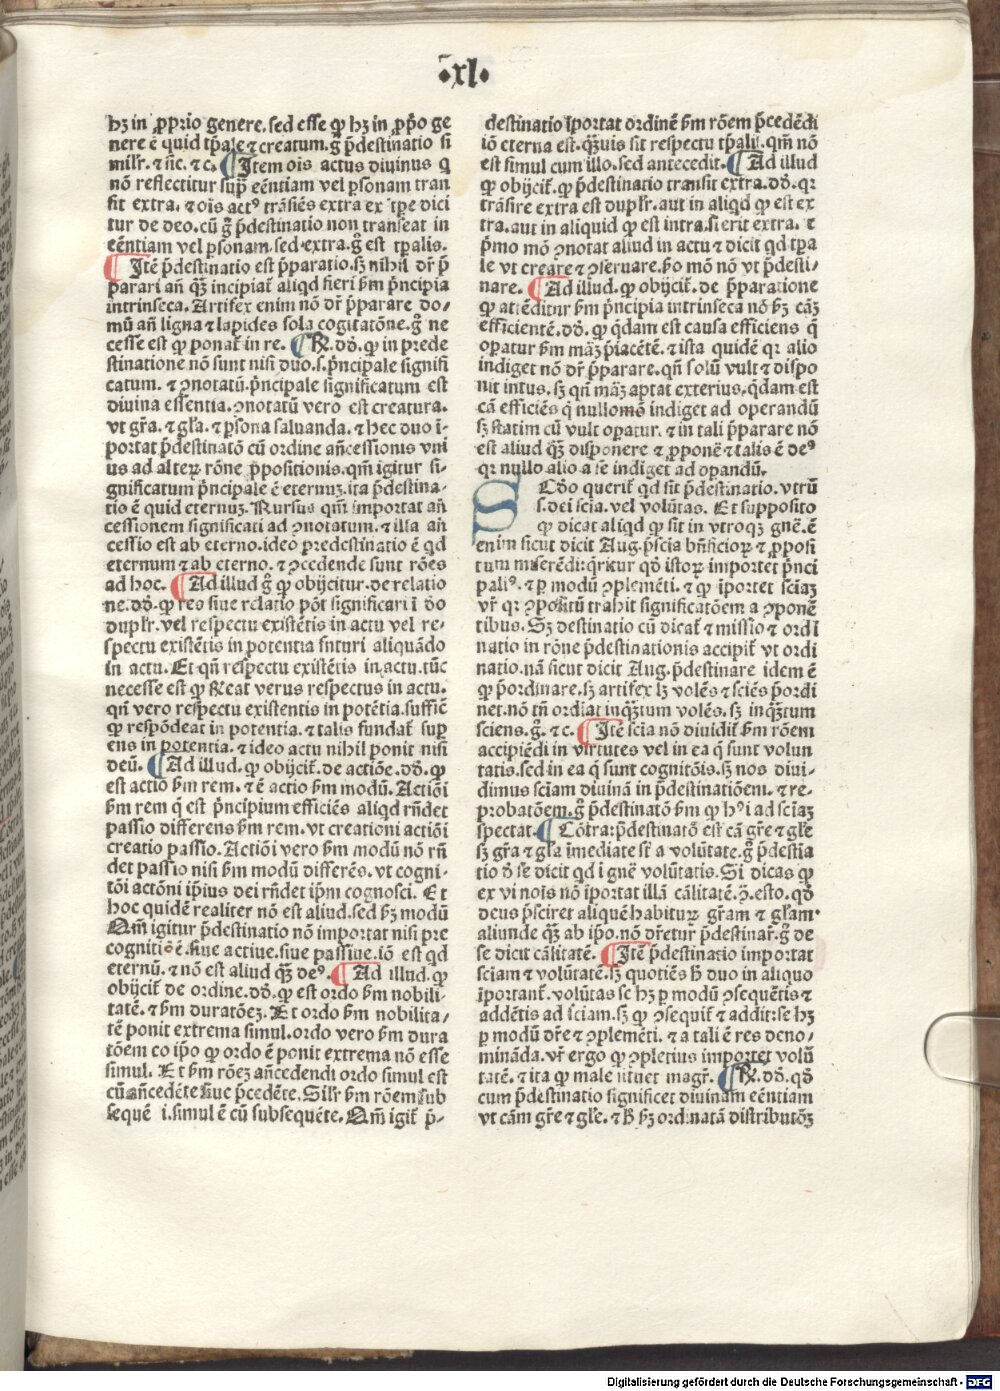 •xl•
hȝ in ꝓprio genere. sed esse qꝫ hȝ in ꝓpo ge
nere ē quid tp̄ale ⁊ creatum. g̊ p̄destinatio si
milr̄. ⁊ sic. ⁊ c. ¶ Item ois actus diuinus q
nō reflectitur suꝑ eēntiam vel ꝑsonam tran
sit extra. ⁊ ois actꝰ trāsiēs extra ex tꝑe dici
tur de deo. cū g̊ p̄destinatio non transeat in
eēntiam vel ꝑsonam. sed extra. g̊ est tꝑalis.
¶ Itē p̄destinatio est p̄paratio. sȝ nihil dr̄ p̄
parari añ qꝫ incipiat̄ aliqd fieri ẜm p̄ncipia
intrinseca. Artifex enim nō dr̄ p̄parare do⸗
mū añ ligna ⁊ lapides sola cogitatōne. g̊ ne
cesse est ꝙ ponat̄ in re. ¶ R̄. dō. ꝙ in prede
stinatione nō sunt nisi duo. s. p̄ncipale signifi
catum. ⁊ ꝯnotatū. p̄ncipale significatum est
diuina essentia. ꝯnotatū vero est creatura.
vt gr̄a. ⁊ gl̄a. ⁊ ꝑsona saluanda. ⁊ hec duo ī⸗
portat p̄destinatō cū ordine añcessionis vni
us ad alteꝝ rōne p̄positionis. qm̄ igitur si⸗
gnificatum p̄ncipale ē eternuȝ. ita p̄destina⸗
tio ē quid eternuȝ. Rursus qm̄ importat añ
cessionem significati ad ꝯnotatum. ⁊ illa añ
cessio est ab eterno. ideo predestinatio ē qd
eternum ⁊ ab eterno. ⁊ ꝓcedende sunt rōes
ad hoc. ¶ Ad illud g̊ ꝙ obijcitur. de relatio
ne. dō. ꝙ res siue relatio pōt significari ī do
duplr̄. vel respectu existētis in actu vel re⸗
spectu existētis in potentia futuri aliquādo
in actu. Et qn̄ respectu existētis in actu. tūc
necesse est ꝙ ꝶeat verus respectus in actu.
qn̄ vero respectu existentis in potētia. suffic̄
ꝙ respōdeat in potentia. ⁊ talis fundat̄ suꝑ
ens in potentia. ⁊ ideo actu nihil ponit nisi
deū. ¶ Ad illud. ꝙ obijcit̄. de actiōe. dō. ꝙ
est actio ẜm rem. ⁊ ē actio ẜm modū. Actiōi
ẜm rem q̄ est p̄ncipium efficiēs aliqd rn̄det
passio differens ẜm rem. vt creationi actiōi
creatio passio. Actiōi vero ẜm modū nō rn̄
det passio nisi ẜm modū differēs. vt cogni⸗
tōi actōni ip̄ius dei rn̄det ip̄m cognosci. Et
hoc quidē realiter nō est aliud. sed ẜȝ modū
Qm̄ igitur p̄destinatio nō importat nisi pre
cognitiōē. siue actiue. siue passiue. iō est qd
eternū. ⁊ nō est aliud qꝫ deꝰ. ¶ Ad illud. ꝙ
obijcit̄ de ordine. dō. ꝙ est ordo ẜm nobili⸗
tatē. ⁊ ẜm duratōeȝ. Et ordo ẜm nobilita⸗
tē ponit extrema simul. ordo vero ẜm dura
tōem eo ip̄o ꝙ ordo ē ponit extrema nō esse
simul. Et ẜm rōeȝ añcedendi ordo simul est
cū añcedēte siue p̄cedēte. Silr̄ ẜm rōem sub
sequē i. simul ē cū subsequēte. Qm̄ igit̄ p̄⸗
destinatio īportat ordinē ẜm rōem p̄cedēdi
iō eterna est. qꝫuis sit respectu tꝑali. qm̄ nō
est simul cum illo. sed antecedit. ¶ Ad illud
ꝙ obijcit̄. ꝙ p̄destinatio transit extra. dō. qꝛ
trāsire extra est duplr̄. aut in aliqd ꝙ est ex
tra. aut in aliquid ꝙ est intra. si erit extra. ⁊
p̄mo mō ꝯnotat aliud in actu ⁊ dicit qd tꝑa
le vt creare ⁊ ꝯseruare. ẜo mō nō vt p̄desti⸗
nare. ¶ Ad illud. ꝙ obijcit̄. de p̄paratione
ꝙ attēditur ẜm p̄ncipia intrinseca nō ẜȝ cāȝ
efficientē. dō. ꝙ q̄dam est causa efficiens q̄
oꝑatur ẜm māȝ p̄iacētē. ⁊ ista quidē qꝛ alio
indiget nō dr̄ p̄parare. qn̄ solū vult ⁊ dispo
nit intus. sȝ qn̄ māȝ aptat exterius. q̄dam est
cā efficiēs q̄ nullomō indiget ad operandū
sȝ statim cū vult oꝑatur. ⁊ in tali p̄parare nō
est aliud qꝫ disponere ⁊ ꝓponē ⁊ talis ē deꝰ
qꝛ nullo alio a se indiget ad oꝑandū.
Scdo querit̄ qd sit p̄destinatio. vtrū
s. dei scia. vel volūtas. Et supposito
ꝙ dicat aliqd ꝙ sit in vtroqꝫ gn̄e. ē
enim sicut dicit Aug. p̄scia bn̄ficioꝝ ⁊ ꝓposi
tum miserēdi: q̄ritur qd istoꝝ importet p̄nci
paliꝰ. ⁊ ꝑ modū ꝯplemēti. ⁊ ꝙ īportet sciaȝ
vr̄ qꝛ ꝯpositū trahit significatōem a ꝯponē
tibus. Sȝ destinatio cū dicat̄ ⁊ missio ⁊ ordi
natio in rōne p̄destinationis accipit̄ vt ordi
natio. nā sicut dicit Aug. p̄destinare idem ē
ꝙ p̄ordinare. sȝ artifex lȝ volēs ⁊ sciēs p̄ordi
net. nō tn̄ ordīat inqꝫtum volēs. sȝ inqꝫtum
sciens. g̊. ⁊ c. ¶ Itē scia nō diuidit̄ ẜm rōem
accipiēdi in virtutes vel in ea q̄ sunt volun
tatis. sed in ea q̄ sunt cognitōis. sȝ nos diui⸗
dimus sciam diuinā in p̄destinatiōem. ⁊ re⸗
probatōem. g̊ p̄destinatō ẜm ꝙ hꝰi ad sciaȝ
spectat. ¶ Cōtra: p̄destinatō est cā gr̄e ⁊ gl̄e
sȝ gr̄a ⁊ gl̄a īmediate st̄ a volūtate. g̊ p̄destīa
tio d̄ se dicit qd ī gn̄e volūtatis. Si dicas ꝙ
ex vi nois nō īportat illā cālitatē. ꝯ. esto. qd
deus p̄sciret aliquē habituꝝ gr̄am ⁊ gl̄am
aliunde qꝫ ab ip̄o. nō dr̄etur p̄destinar̄. g̊ de
se dicit cālitatē. ¶ Itē p̄destinatio importat
sciam ⁊ volūtatē. sȝ quotiēs h̄ duo in aliquo
īportant̄. volūtas se hȝ ꝑ modū ꝯsequētis ⁊
addētis ad sciam. sȝ ꝙ ꝯsequit̄ ⁊ addit: se hȝ
ꝑ modū dr̄e ⁊ ꝯplemēti. ⁊ a tali ē res deno⸗
mināda. vr̄ ergo ꝙ ꝯpletius importet volū
tatē. ⁊ ita ꝙ male ītuet magr̄. ¶ R̄. dō. qd
cum p̄destinatio significet diuinam eēntiam
vt cām gr̄e ⁊ gl̄e. ⁊ h̄ ẜȝ ordinatā distributōȝ
Digitalisierung gefördert durch die Deutsche Forschungsgemeinschaft - DFG